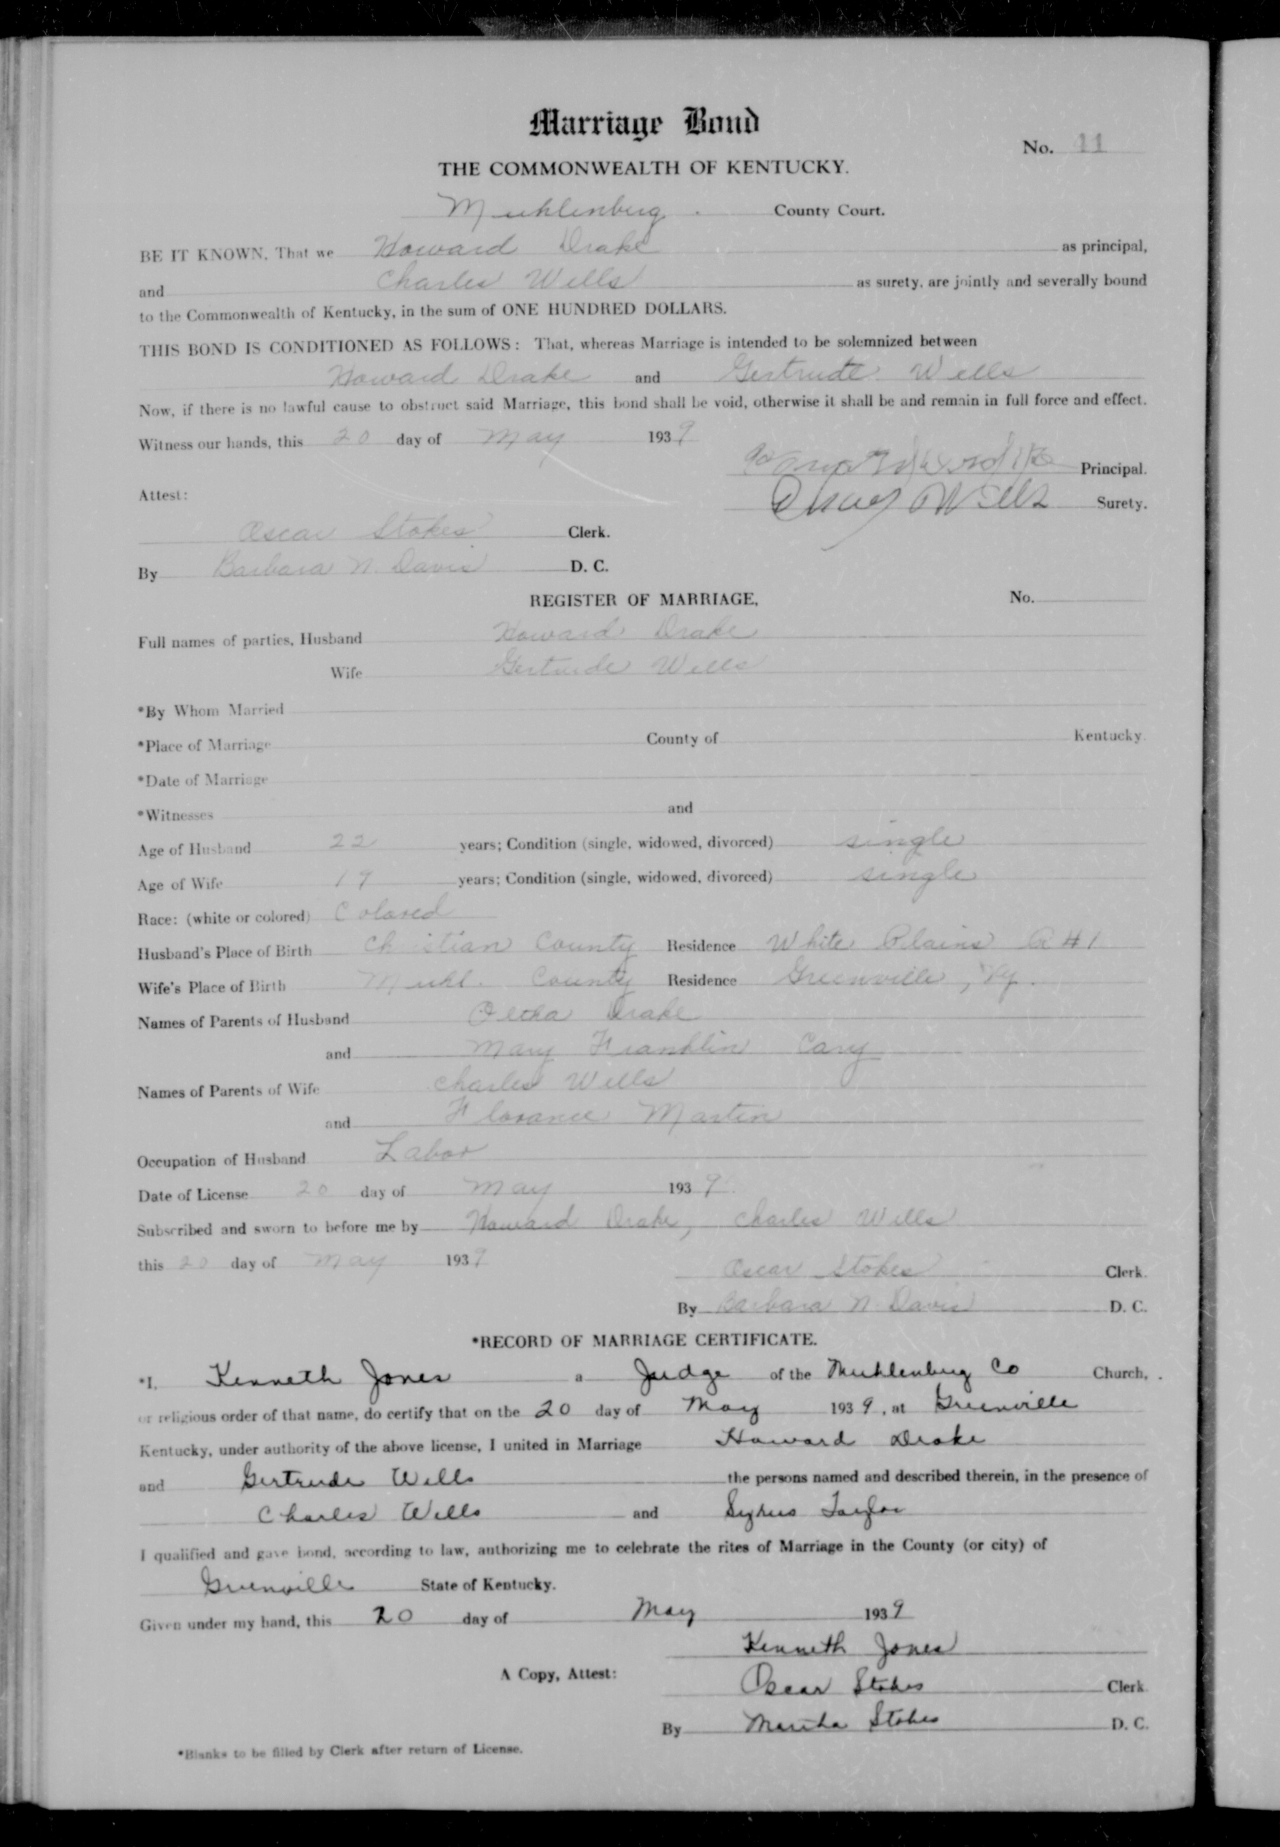 Marriage Bond
No. 11
THE COMMONWEALTH OF KENTUCKY.
Muhlenberg County Court.
BE IT KNOWN, That we Howard Drake as principal,
and Charles Wells as surety, are jointly and severally bound
to the Commonwealth of Kentucky, in the sum of ONE HUNDRED DOLLARS.
THIS BOND IS CONDITIONED AS FOLLOWS: That, whereas Marriage is intended to be solemnized between
Howard Drake and Gertrude Wells
Now, if there is no lawful cause to obstruct said Marriage, this bond shall be void, otherwise it shall be and remain in full force and effect.
Witness our hands, this 20 day of May 1939
Principal.
Attest: Wells Surety.
Oscar Stokes Clerk.
By Barbara N. Davis D. C.
REGISTER OF MARRIAGE, No.
Full names of parties, Husband Howard Drake
Wife Gertrude Wells
*By Whom Married
*Place of Marriage County of Kentucky.
*Date of Marriage
*Witnesses and
Age of Husband 22 years; Condition (single, widowed, divorced) single
Age of Wife 19 years; Condition (single, widowed, divorced) single
Race: (white or colored) Colored
Husband's Place of Birth Christian County Residence White Plains R #1
Wife's Place of Birth Muhl. County Residence Greenville, Ky.
Names of Parents of Husband Drake
and Mary Franklin Cary
Names of Parents of Wife Charles Wells
and Florance Martin
Occupation of Husband Labor
Date of License 20 day of May 1939
Subscribed and sworn to before me by Howard Drake, Charles Wells
this 20 day of May 1939
Oscar Stokes Clerk.
By Barbara N. Davis D. C.
*RECORD OF MARRIAGE CERTIFICATE.
*I, Kenneth Jones a Judge of the Muhlenburg Co Church,
or religious order of that name, do certify that on the 20 day of May 1939, at Greenville
Kentucky, under authority of the above license, I united in Marriage Howard Drake
and Gertrude Wells the persons named and described therein, in the presence of
Charles Wells and Taylor
I qualified and gave bond, according to law, authorizing me to celebrate the rites of Marriage in the County (or city) of
Greenville State of Kentucky.
Given under my hand, this 20 day of May 1939
Kenneth Jones
A Copy, Attest: Oscar Stokes Clerk
By Martha Stokes D. C.
*Blanks to be filled by Clerk after return of License.